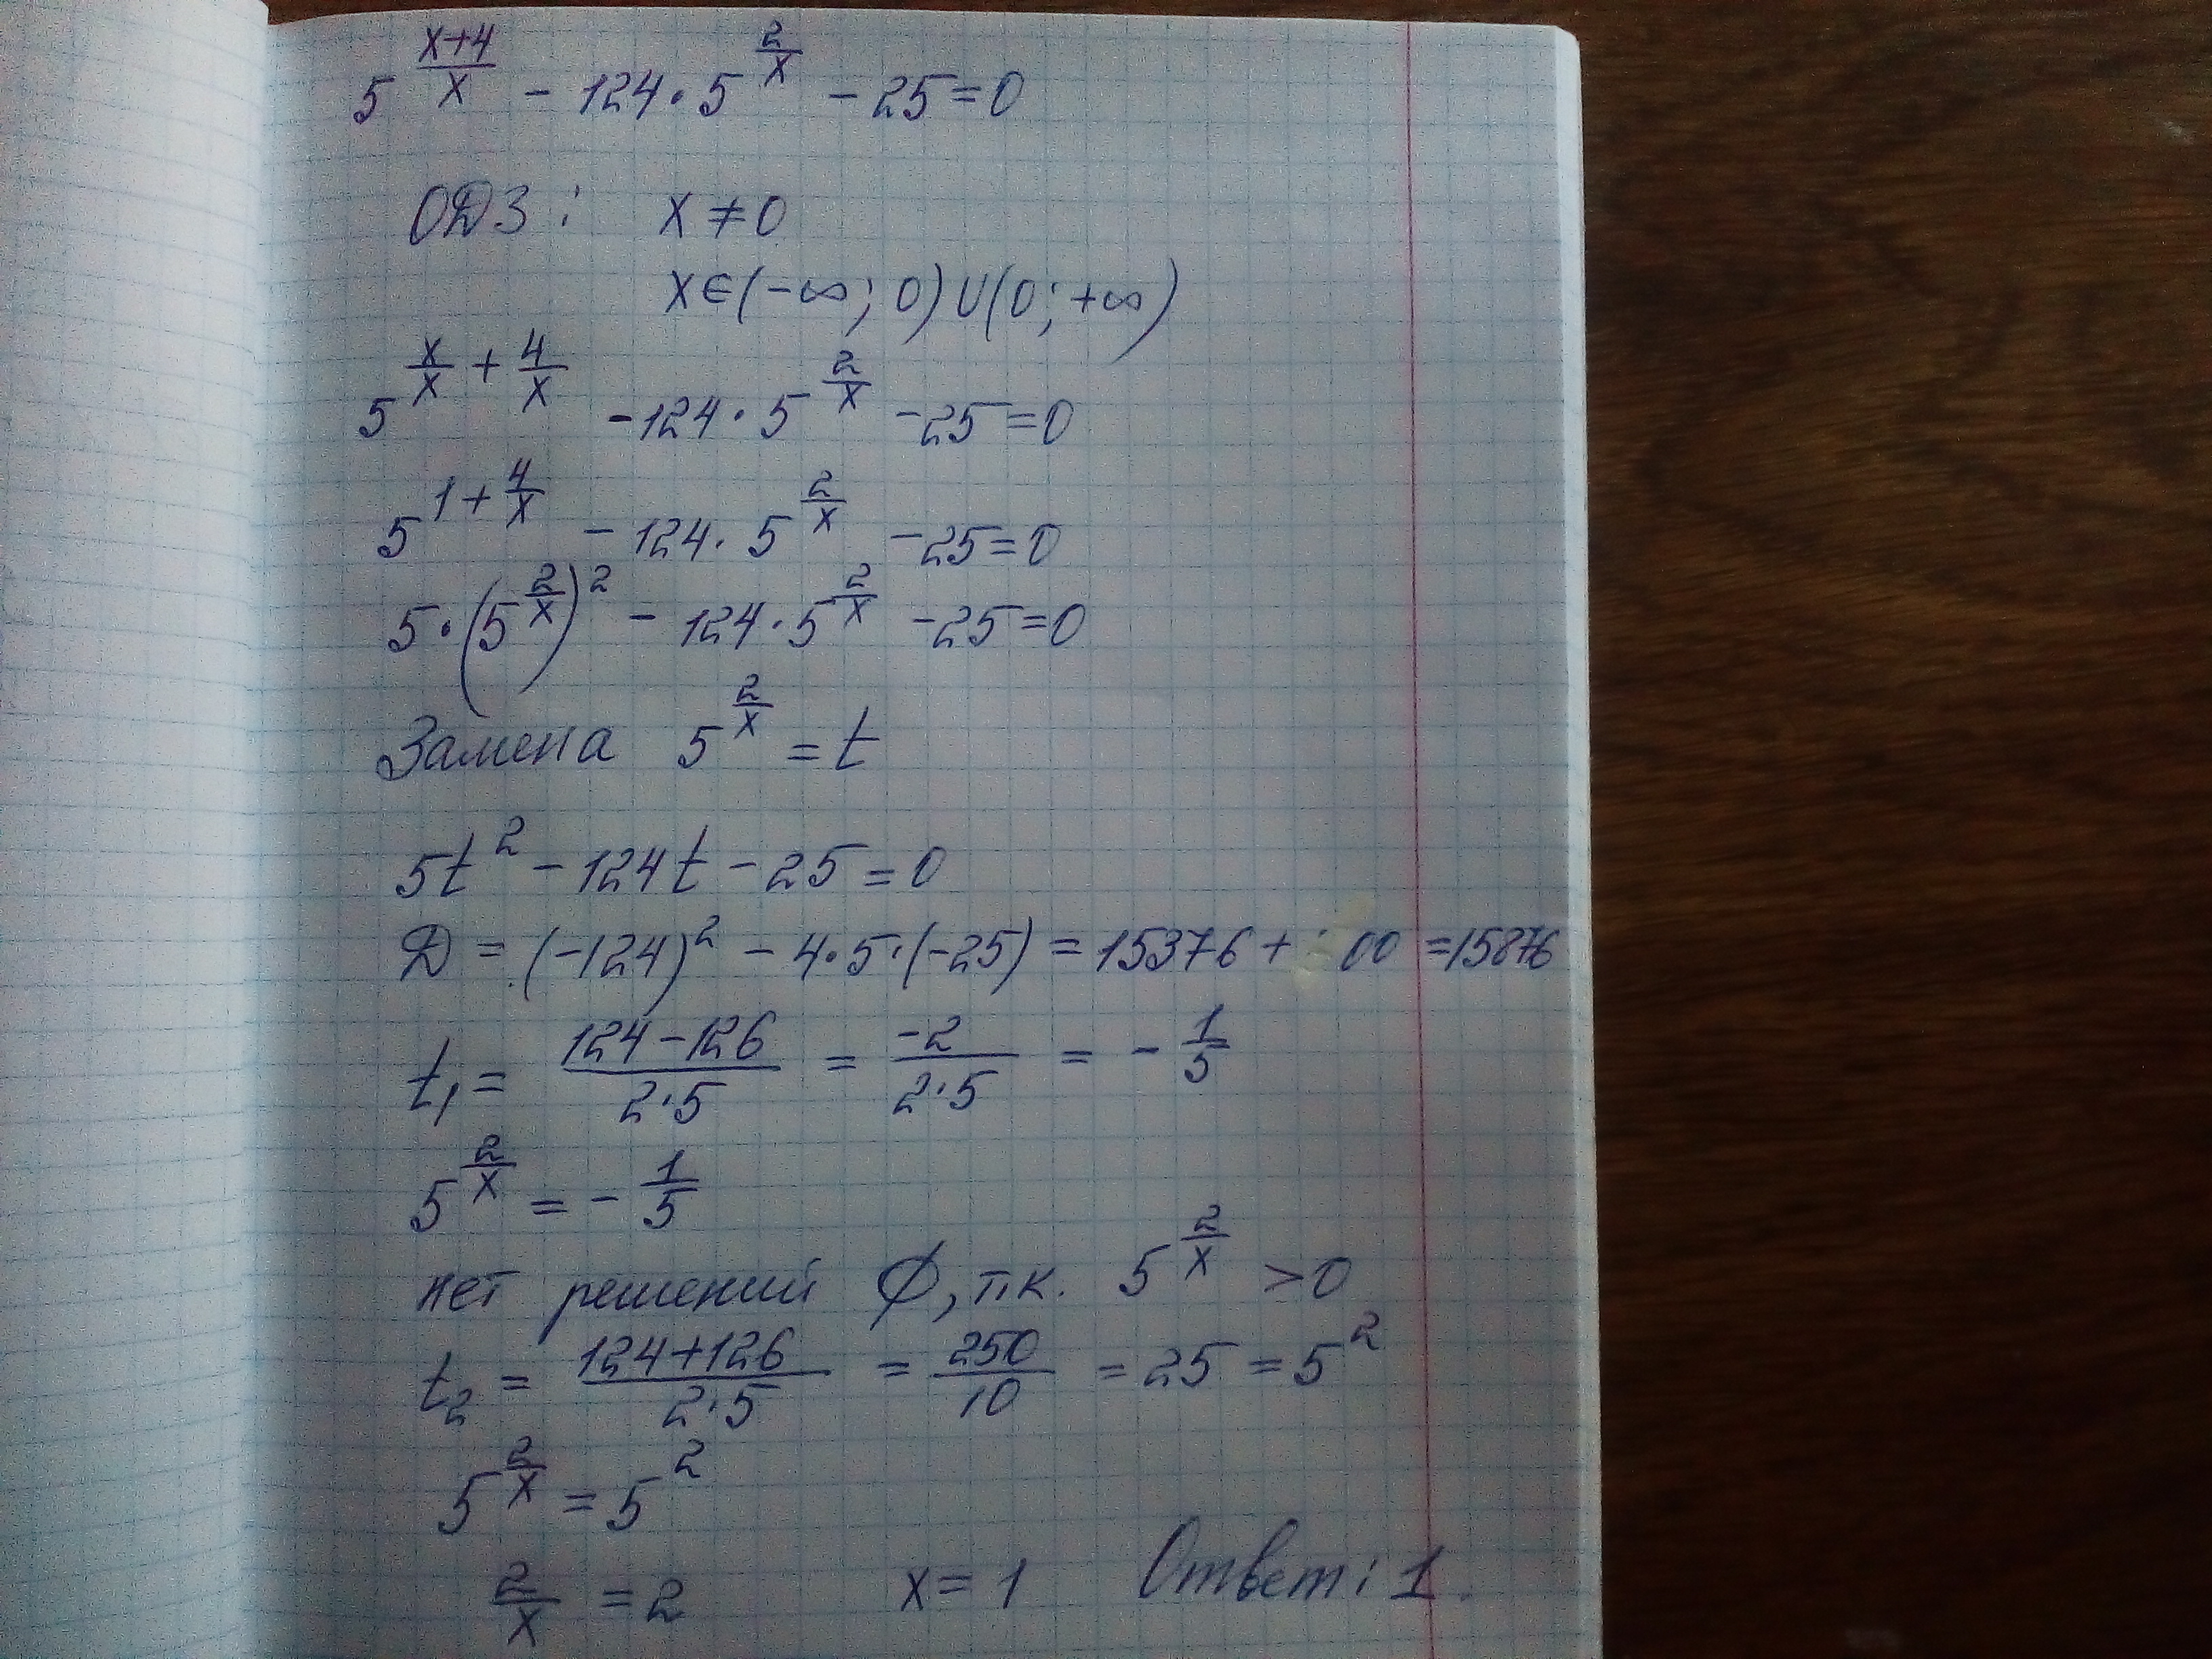 5^((x+4)/x) - 124·5^(2/x) - 25=0
ОДЗ: x≠0
x∈(-∞; 0)∪(0; +∞)
5^(x/x + 4/x) -124·5^(2/x) -25=0
5^(1+4/x) - 124·5^(2/x) -25=0
5·(5^(2/x))^2 - 124·5^(2/x) -25=0
Замена 5^(2/x) = t
5t^2 - 124t - 25 = 0
Д = (-124)^2 - 4·5·(-25) = 15376 + 00 =15876
t₁ = (124-126)/(2·5) = (-2)/(2·5) = - 1/5
5^(2/x) = - 1/5
нет решений ∅, т.к. 5^(2/x) >0
t₂ = (124+126)/(2·5) = 250/10 = 25 = 5^2
5^(2/x) = 5^2
2/x = 2 x = 1 Ответ: 1.